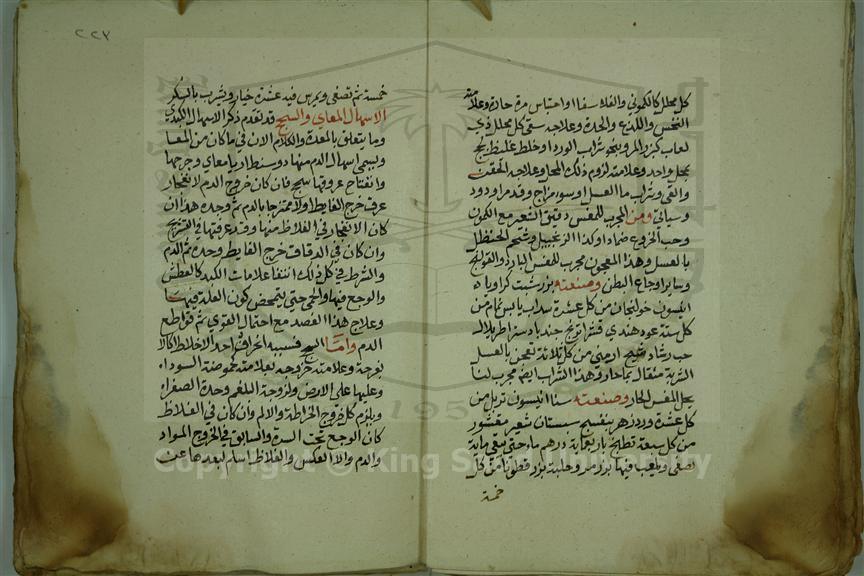 كل محلل كالكموني والفلاسفا او احتباس مرة حادة وعلامته
النخس واللذع والحدة وعلاجه سقي كل محلل ذي
لعاب كبزر المرو بنحو شراب الورد او خلط غليظ لزج
بمحل واحد وعلامته لزوم ذلك المحل وعلاجه الحقن
والقي وشراب ماء العسل او سوء مزاج وقد مر او دود
وسياتي ومن المجرب للمغس دقيق الشعير مع الكمون
وحب الخروع ضمادا وكذا الزنجبيل وشحم الحنظل
بالعسل وهذا المعجون مجرب للمغس البارد والقولنج
وساير اوجاع البطن وصنعته بزر شبت كراويا
انيسون خولنجان من كل عشرة سداب يابس نمام من
كل ستة عود هندي قشر اترج جندبادستر اطريلال
حب رشاد شيح ارمني من كل ثلاثة تعجن بالعسل
الشربة مثقال بماء حار وهذا الشراب ايضا مجرب لنا
بحل المغس الحار وصنعته سنا انيسون تربل من
كل عشرة ورد زهر بنفسج سبستان شعير مقشور
من كل سبعة تطبخ باربعماية درهم ماء حتى يبقى ماية
تصفى ويلعب فيها بزر مر وحلبة بزر قطونا من كل
خمسة
٢٢٣
خمسة ثم تصفى ويمرس فيه عشرة خيار ويشرب بالسكر
الاسهال المعاي والسحج قد تقدم ذكر الاسهال الكبدي
وما يتعلق بالمعدة والكلام الان في ما كان من المعا
ويسمى اسهال الدم منها دوسنطاريا معاي وجرحها
وانفتاح عروقها سحج فان كان خروج الدم لانفجار
عرق خرج الغايط اولا ممتزجا بالدم ثم وحده هذا ان
كان الانفجار في الغلاظ منها وقد عرفتها في التشريح
وان كان في الدقاق خرج الغايط وحده ثم الدم
والشرط في كل ذلك انتفا علامات الكبد كالعطش
والوجع فيها والحمى حتى يتمحض كون العلة فيها
وعلاج هذا الفصد مع احتمال القوي ثم قواطع
الدم واما السحج فسببه انحراف احد الاخلاط اكالا
بفرجة وعلامته خروجه بعلامته كحموضة السوداء
وغليها على الارض ولزوجة البلغم وحدة الصفراء
ويلزم كل خروج الخراطة والالم وان كان في الغلاظ
كان الوجع تحت السرة والسابق في الخروج المواد
والدم والا العكس والغلاظ اسلم لبعدها عن
Copyright © King Saud University
195